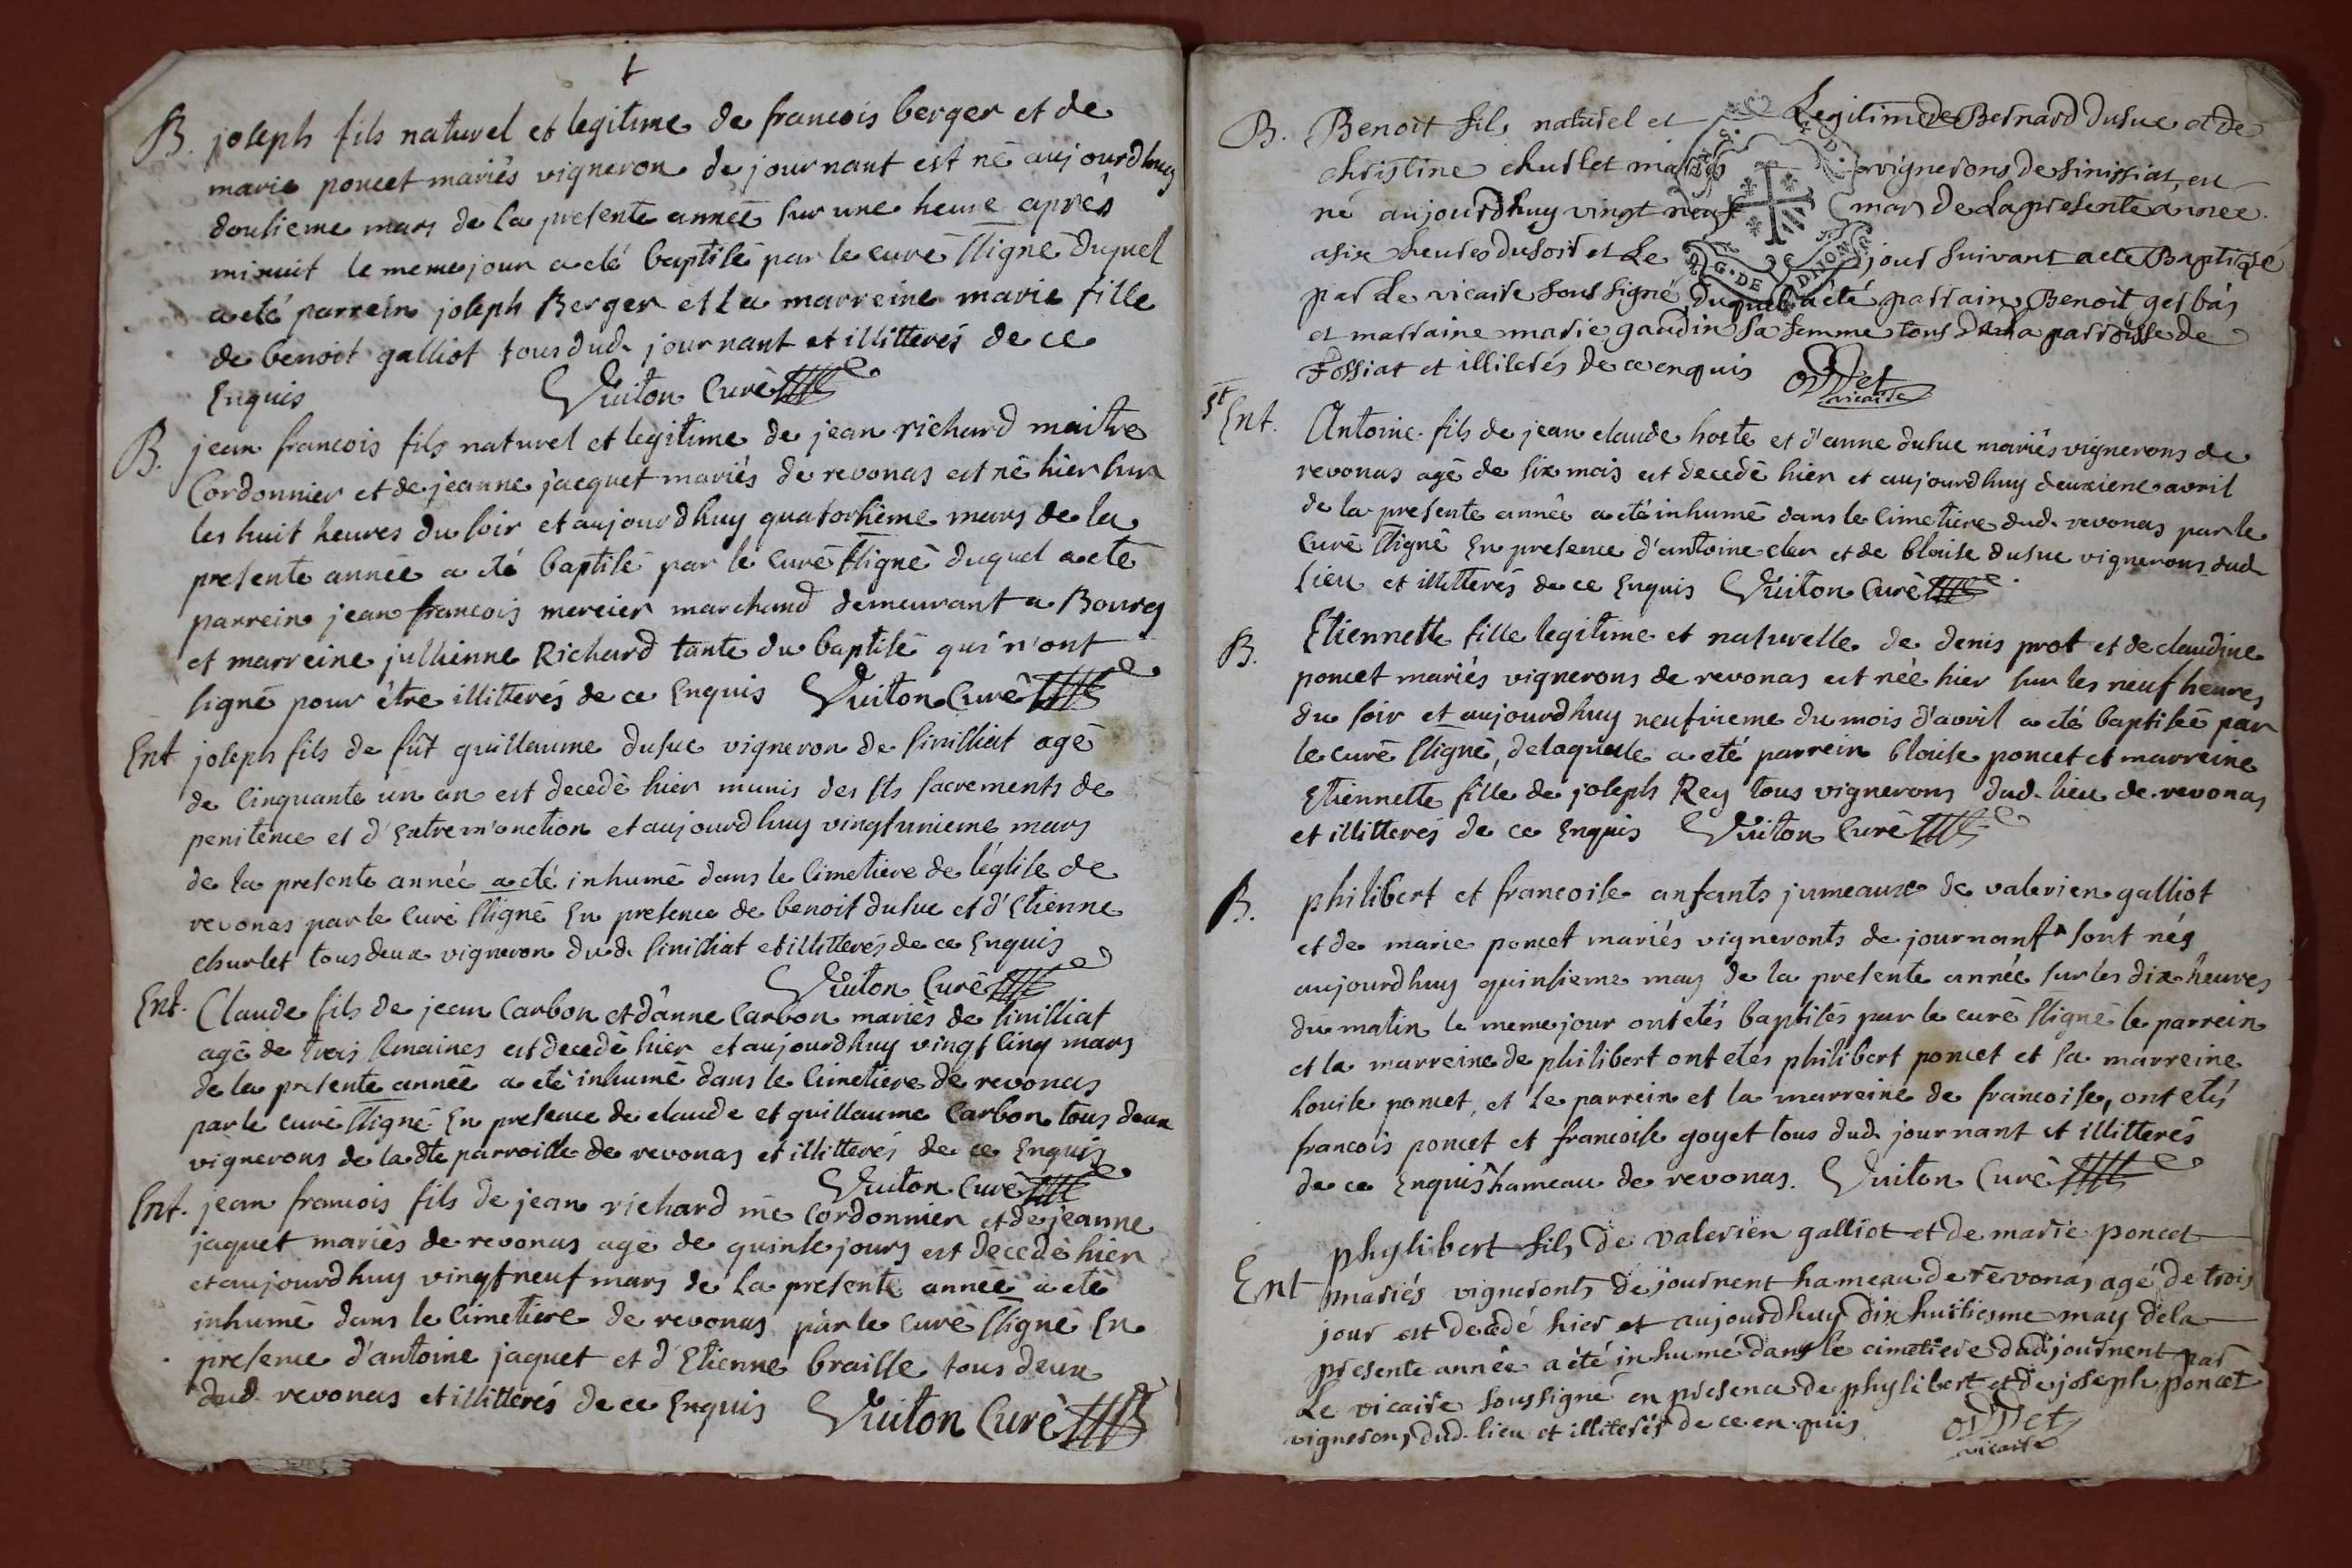 B. joseph fils naturel et legitime de francois berger et de
marie poncet mariés vigneron de journant est né aujourdhuy
dousieme mars de la presente année sur une heure après
minuit le meme jour a eté baptisé par le curé ssigné duquel
a eté parrein joseph Berger et la marreine marie fille
de benoit galliot tous dud. journant et illitterés de ce
Enquis Vuiton Curé
B. jean francois fils naturel et legitime de jean richard maitre
Cordonnier et de jeanne jacquet mariés de revonas est né hier sur
les huit heures du soir et aujourdhuy quatorsieme mars de la
presente année a eté baptisé par le curé ssigné duquel a eté
parrein jean francois mercier marchand demeurant a Bourg
et marreine jullienne Richard tante du baptisé qui n'ont
signé pour être illitterés de ce Enquis Vuiton Curé
Ent joseph fils de fût guillaume dusuc vigneron de sinissiat agé
de cinquante un an est decedé hier munis des sts sacrements de
penitence et d'Extrem'onction et aujourdhuy vingtunieme mars
de la presente année a eté inhumé dans le cimetiere de l'église de
revonas par le curé ssigné En presence de benoit dusuc et d'Etienne
churlet tous deux vigneron dud. sinissiat et illitterés de ce Enquis
Vuiton Curé
Ent. Claude fils de jean Carbon et d'anne Carbon mariés de sinissiat
agé de trois semaines est decedé hier et aujourdhuy vingt cinq mars
de la presente année a eté inhumé dans le cimetiere de revonas
par le curé ssigné En presence de claude et guillaume Carbon tous deux
vignerons de ladte parroisse de revonas et illitterés de ce Enquis
Vuiton Curé
Ent. jean francois fils de jean richard me cordonnier et de jeanne
jaquet mariés de revonas agé de quinse jours est decedé hier
et aujourdhuy vingt neuf mars de la presente année a eté
inhumé dans le cimetiere de revonas par le curé ssigné En
presence d'antoine jaquet et d'Etienne braille tous deux
dud. revonas et illitterés de ce Enquis Vuiton Curé
B. Benoit fils naturel et Legitime de Bernard Dusuc et de
christine churlet mariés vignerons de sinissiat, est
né aujourdhuy vingt neuf mars de La presente année
a six heures du soir et Le jour suivant a eté Baptisé
par Le vicaire soussigné, duquel a été parrain Benoit gerbás
et marraine marie gaudin sa femme tous de la parroisse de
Fossiat et illiterés de ce enquis
vicaire
Ent. Antoine fils de jean claude hoste et d'anne dusuc mariés vignerons de
revonas agé de six mois est decedé hier et aujourdhuy deuxieme avril
de la presente année a eté inhumé dans le cimetiere dud. revonas par le
curé ssigné En presence d'antoine cler et de blaise dusuc vignerons dud.
lieu et illitterés de ce Enquis Vuiton Curé
B. Etiennette fille legitime et naturelle de denis prot et de claudine
poncet mariés vignerons de revonas est née hier sur les neuf heures
du soir et aujourdhuy neufvieme du mois d'avril a eté baptisée par
le curé ssigné, de laquelle a eté parrein blaise poncet et marreine
Etiennette fille de joseph Rey tous vignerons dud. lieu de revonas
et illitterés de ce Enquis Vuiton Curé
B. philibert et francoise anfants jumeaux de valerien galliot
et de marie poncet mariés vigneronts de journant sont nés
aujourdhuy quinsieme may de la presente année sur les dix heures
du matin le meme jour ont etés baptisés par le curé ssigné le parrein
et la marreine de philibert ont etés philibert poncet et sa marreine
Louise poncet, et le parrein et la marreine de francoise, ont etés
francois poncet et francoise goyet tous dud. journant et illitterés
de ce Enquis hameau de revonas. Vuiton Curé
phylibert fils de valerien galliot et de marie poncet
Ent mariés vigneronts de journent hameau de revonas, agé de trois
jour est decedé hier et aujourdhuy dix huitiesme may de la
presente année a été inhumé dans le cimetiere dud. journent par
Le vicaire soussigné en presence de phylibert et de joseph poncet
vignerons dud. lieu et illiterés de ce en quis
vicaire